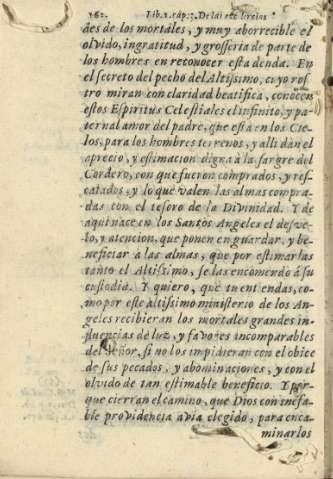 162. Lib. 1. cap. 7. De las
des de los mortales, y muy aborrecible el
olvido, ingratitud, y grosseria de parte de
los hombres en reconocer esta deuda. En
el secreto del pecho del Altissimo, cuyo ros
tro miran con claridad beatifica, conocen
estos Espiritus Celestiales el infinito, y pa
ternal amor del padre, que està en los Cie-
los, para los hombres terrenos, y alli dan el
aprecio, y estimacion digna à la sangre del
Cordero, con que fueron comprados, y res-
catados, y lo que valen las almas compra-
das con el tesoro de la Divinidad. Y de
aqui nace en los Santos Angeles el desve-
lo, y atencion, que ponen en guardar, y be-
neficiar à las almas, que por estimarlas
tanto el Altissimo, se las encomendò à su
custodia. Y quiero, que tu entiendas, co-
mo por este altissimo ministerio de los An-
geles recibieran los mortales grandes in-
fluencias de luz, y favores incomparables
del Señor, si no los impidieran con el obice
de sus pecados, y abominaciones, y con el
olvido de tan estimable beneficio. Y por-
que cierran el camino, que Dios con inefa-
ble providencia avia elegido, para enca-
minarlos